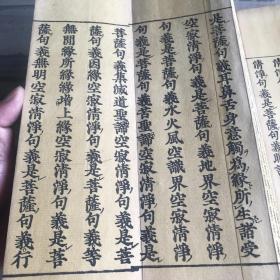 淨句義是菩薩句義
是菩薩句義耳鼻舌身意觸為緣所生諸受
空寂清淨句義是菩薩句義地界空寂清淨
句義是菩薩句義水火風空識界空寂清淨
句義是菩薩句義苦聖諦空寂清淨句義是
菩薩句義集滅道聖諦空寂清淨句義是菩
薩句義因緣空寂清淨句義是菩薩句義等
無間緣所緣緣增上緣空寂清淨句義是菩
薩句義無明空寂清淨句義是菩薩句義行